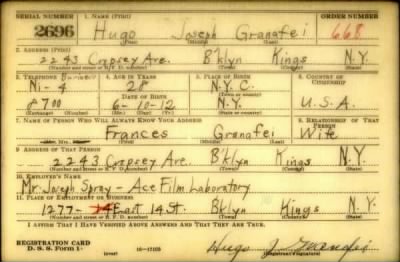 SERIAL NUMBER 1. NAME (Print) ORDER NUMBER
2696 Hugo Joseph Granafei 668
(First) (Middle) (Last)
2. ADDRESS (Print)
2243 Cropsey Ave. B'klyn Kings N.Y.
(Number and street or R. F. D. number) (Town) (County) (State)
3. TELEPHONE Business 4. AGE IN YEARS 5. PLACE OF BIRTH 6. COUNTRY OF CITIZENSHIP
Ni-4 28 N.Y.C.
DATE OF BIRTH (Town or county)
8700 6-10-12 N.Y. U.S.A.
(Exchange) (Number) (Mo.) (Day) (Yr.) (State or country)
7. NAME OF PERSON WHO WILL ALWAYS KNOW YOUR ADDRESS 8. RELATIONSHIP OF THAT PERSON
Frances Granafei Wife
(First) (Middle) (Last)
9. ADDRESS OF THAT PERSON
2243 Cropsey Ave. B'klyn Kings N.Y.
(Number and street or R. F. D. number) (Town) (County) (State)
10. EMPLOYER'S NAME
Mr. Joseph Spray - Ace Film Laboratory
11. PLACE OF EMPLOYMENT OR BUSINESS
1277- East 14 St. B'klyn Kings N.Y.
(Number and street or R. F. D. number) (Town) (County) (State)
I AFFIRM THAT I HAVE VERIFIED ABOVE ANSWERS AND THAT THEY ARE TRUE.
REGISTRATION CARD
D. S. S. Form 1 (over) 16-17105 Hugo J. Granafei
(Registrant's signature)